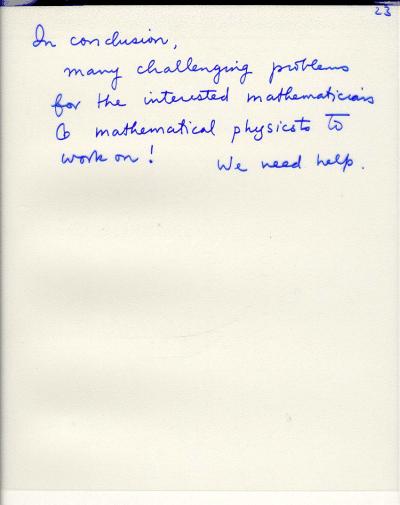 23
In conclusion,
many challenging problems
for the interested mathematicians
& mathematical physicists to
work on! We need help.